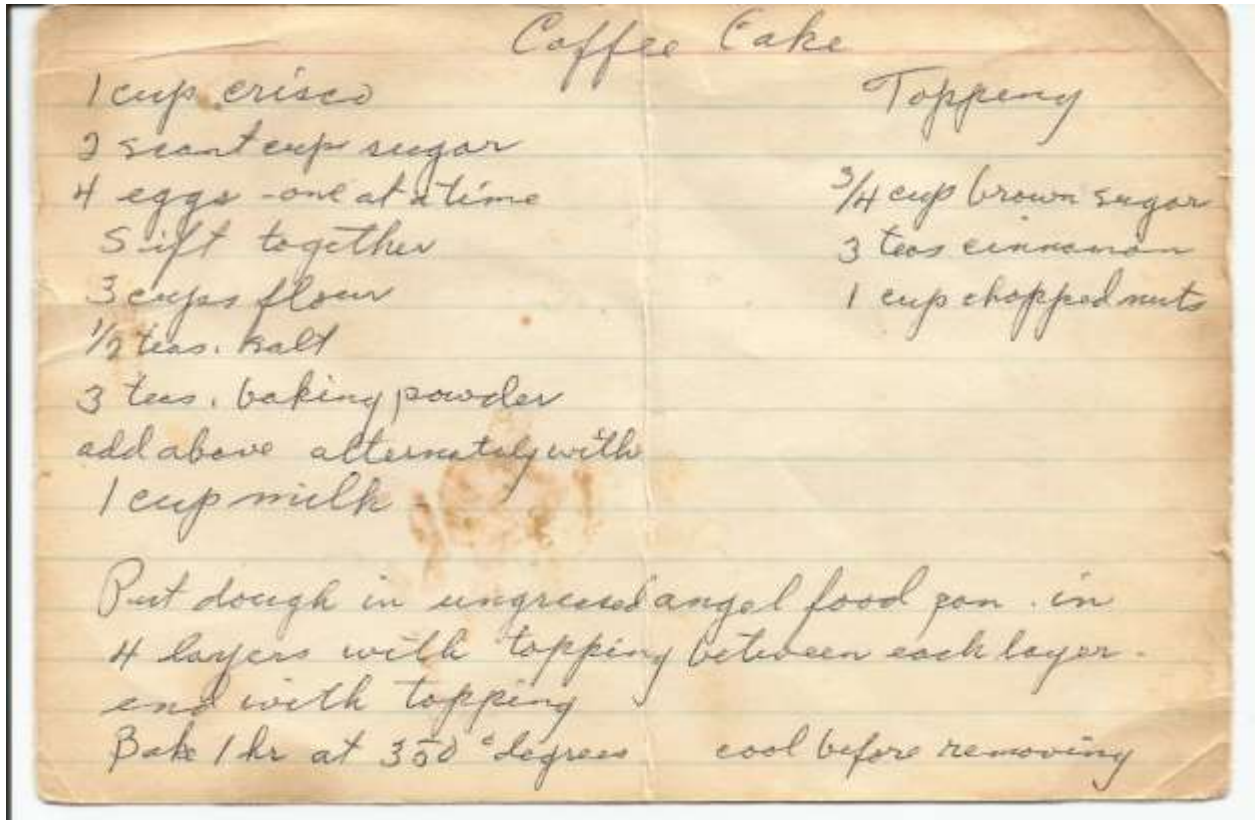 Coffee Cake
1 cup crisco
2 scant cup sugar
4 eggs - one at a time
Sift together
3 cups flour
1/2 teas. salt
3 teas. baking powder
add above alternately with
1 cup milk
Topping
3/4 cup brown sugar
3 teas cinnamon
1 cup chopped nuts
Put dough in ungreased angel food pan. in
4 layers with topping between each layer -
end with topping
Bake 1 hr at 350° degrees cool before removing